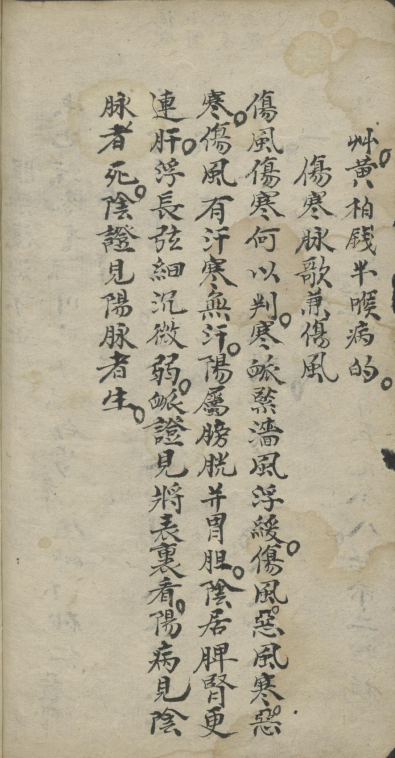 艸。黃柏錢半喉病的。
傷寒脉歌兼傷風
傷風傷寒何以判。寒脈緊濇風浮緩。傷風惡風寒惡
寒。傷風有汗寒無汗。陽屬膀胱并胃胆。陰居脾腎更
連肝。浮長弦細沉微弱。脈證見將表裏看。陽病見陰
脉者死。陰證見陽脉者生。